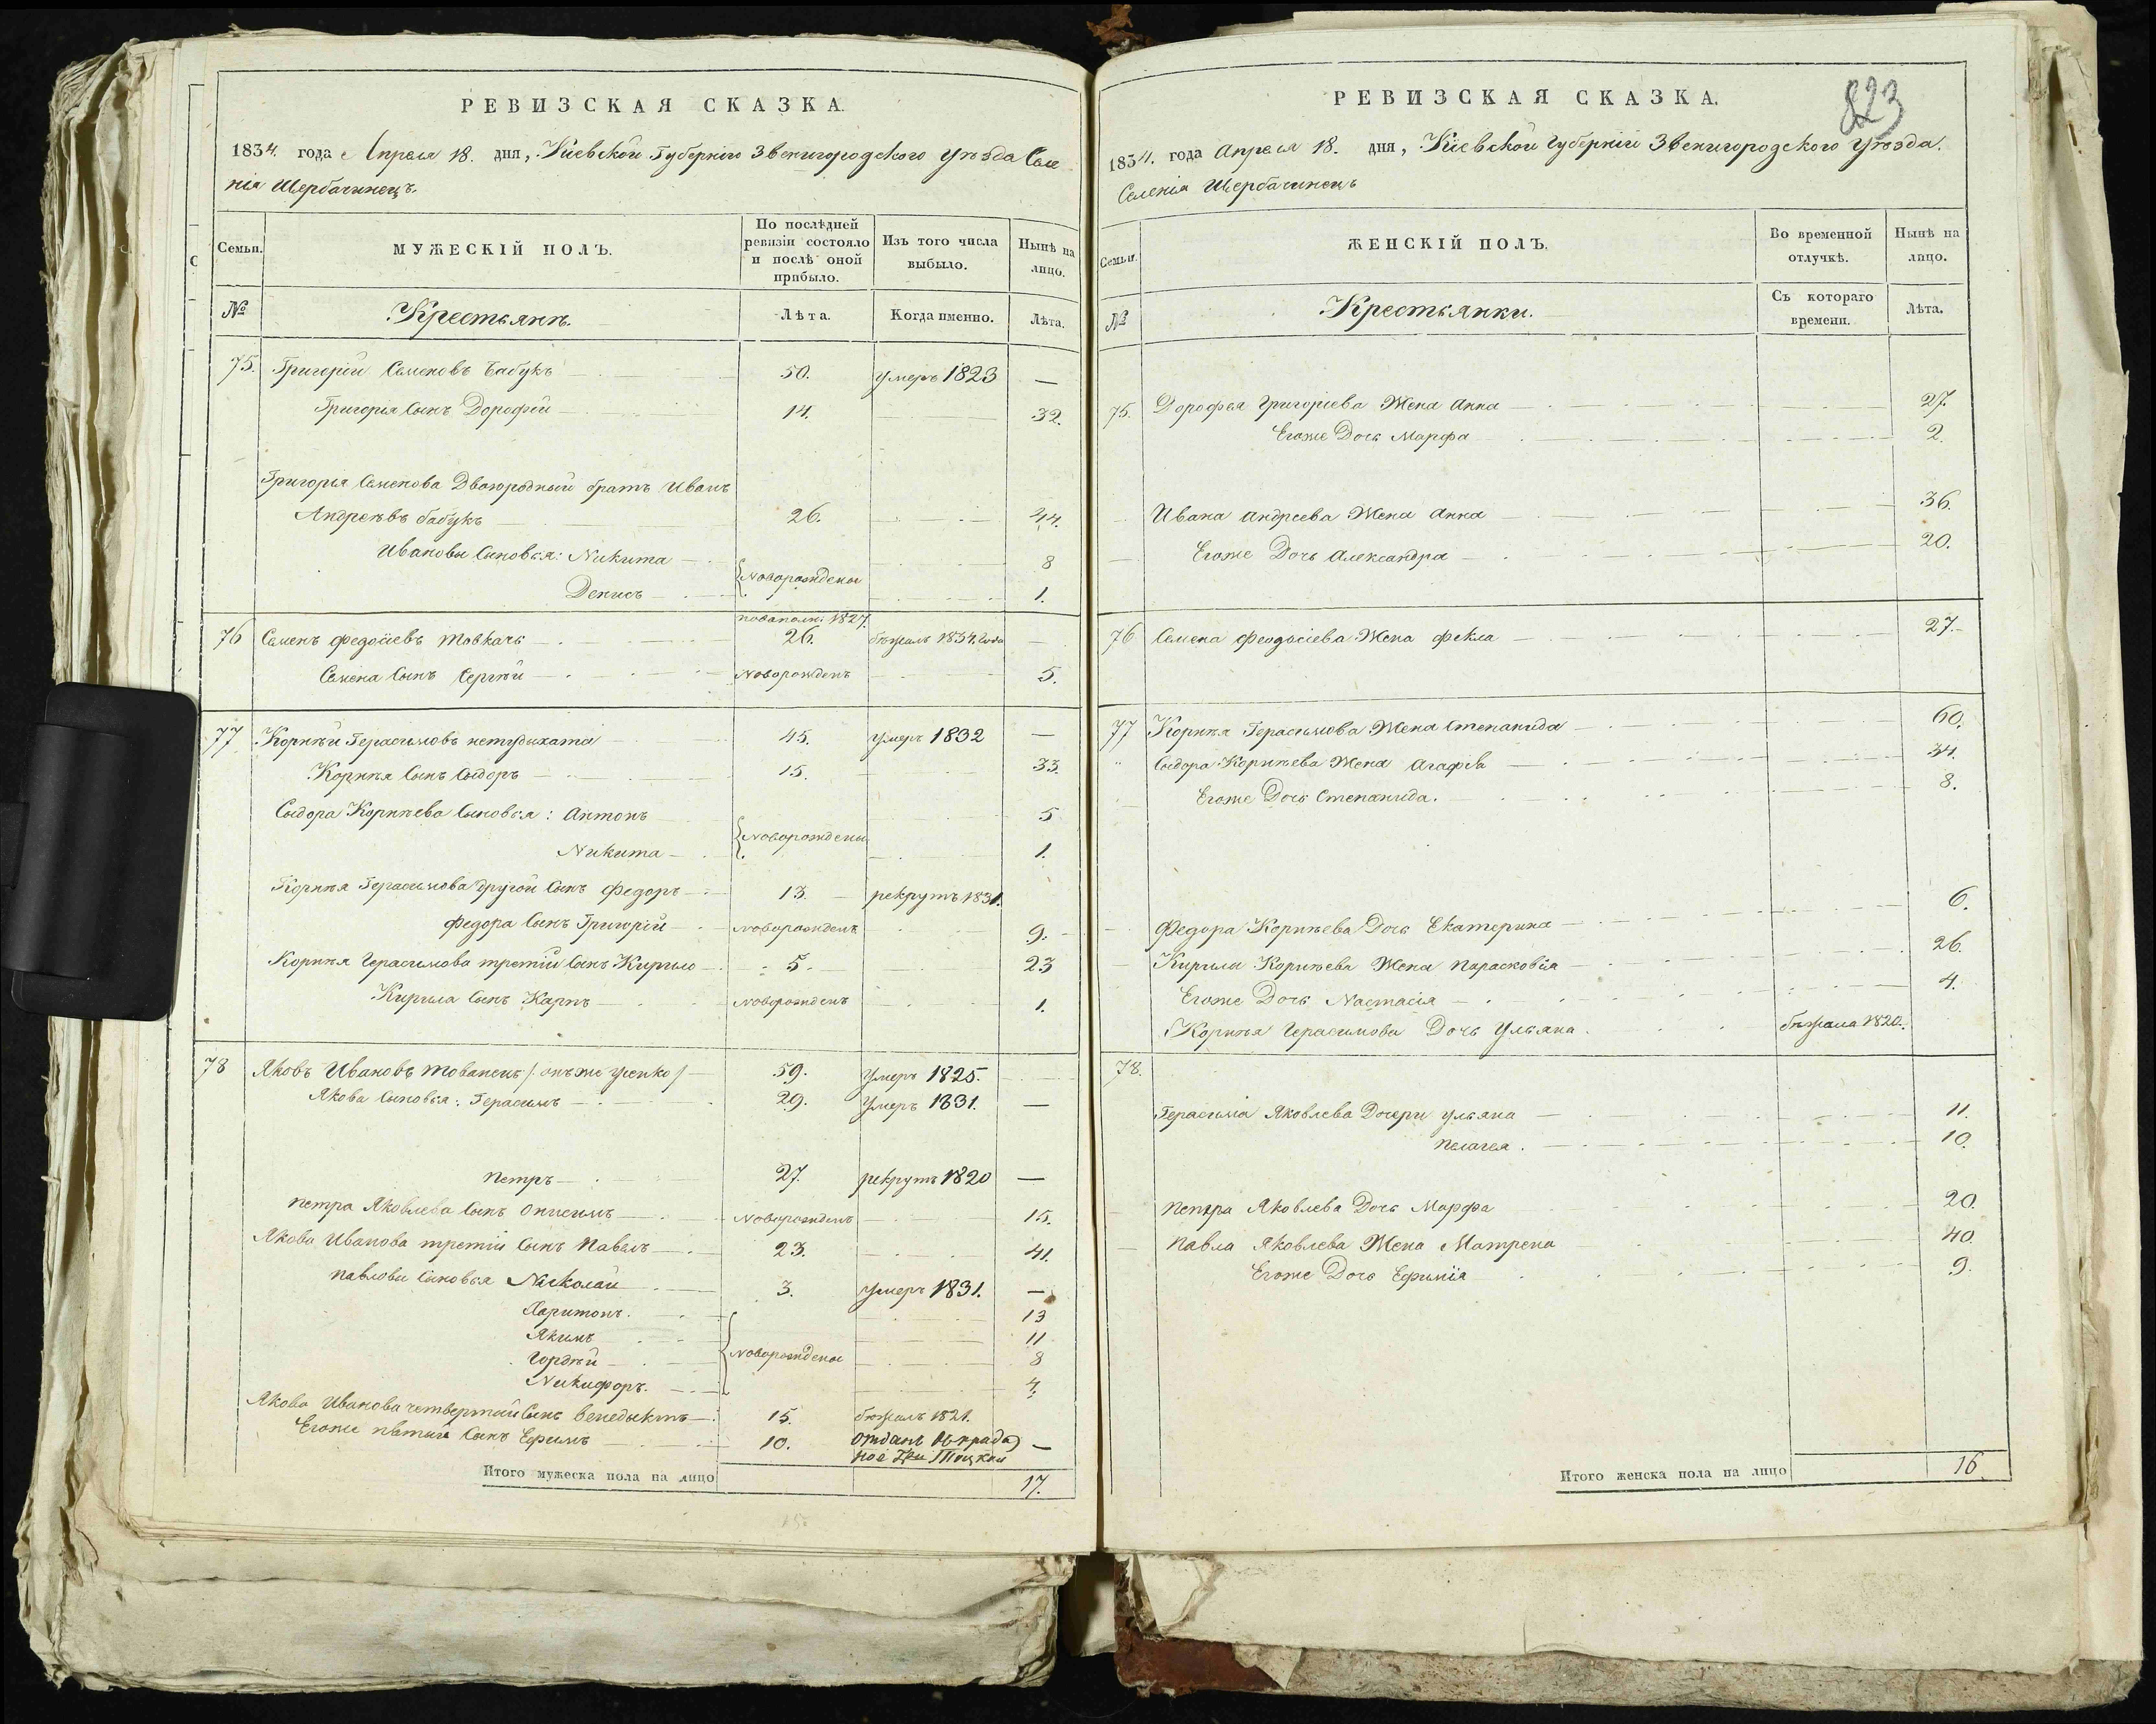 РЕВИЗСКАЯ СКАЗКА.
1834. года Апреля 18. дня, Кіевской Губерніи Звенигородского Уѣзда Селе
нія Щербачинецъ
Семьи. МУЖЕСКІЙ ПОЛЪ. По послѣдней ревизіи состояло и послѣ оной прибыло. Изъ того числа выбыло. Нынѣ на лицо.
№ Крестьянъ. Лѣта. Когда именно. Лѣта.
75. Григорій Семеновъ Бабукъ 50. умеръ 1823 —
Григорія Сынъ Дорофей 14. 32.
Григорія Семенова Двоюродный братъ Иванъ
Андреѣвъ бабукъ 26. 44.
Ивановы Сыновья: Никита 8
Новорождены
Денисъ 1.
1827.
76 Семенъ федосіевъ Товкачъ 26. бѣжалъ 1834. года
Семена Сынъ Сергѣй Новорожденъ 5.
77 Корнѣй Герасимовъ нетудыхата 45. умеръ 1832 —
Корнѣя Сынъ Сыдоръ 15. 33.
Сыдора Корнѣева Сыновья: Антонъ 5
Новорождены
Никита 1.
Корнѣя Герасимова другой Сынъ Федоръ 13. рекрутъ 1831.
федора Сынъ Григорій Новорожденъ 9.
Корнѣя Герасимова третій Сынъ Кирило 5. 23
Кирила Сынъ Карпъ Новорожденъ 1.
78 Яковъ Ивановъ Тованецъ /: онъ же Усенко / 59. Умеръ 1825.
Якова Сыновья: Герасимъ 29. Умеръ 1831. —
Петръ 27. рекрутъ 1820 —
Петра Яковлева Сынъ Онисимъ Новорожденъ 15.
Якова Иванова третій Сынъ Павелъ 23. 41.
Павловы Сыновья Николай 3. Умеръ 1831. —
Харитонъ. 13
Якимъ 11
Новорождены
Гордѣй 8
Никифоръ. 4.
Якова Иванова четвертый Сынъ Венедыктъ 15. бѣжалъ 1821.
Егоже пѣтый Сынъ Ефимъ 10. отданъ —
Итого мужеска пола на лицо 17.
823
РЕВИЗСКАЯ СКАЗКА.
1834. года Апреля 18. дня, Кіевской Губерніи Звенигородского Уѣзда.
Селенія Щербачинецъ
Семьи. ЖЕНСКІЙ ПОЛЪ. Во временной отлучкѣ. Нынѣ на лицо.
№ Крестьянки. Съ котораго времени. Лѣта.
75. Дорофея Григоріева Жена Анна 27.
Егоже Дочь Марфа 2.
Ивана Андреева Жена Анна 36.
Егоже Дочь Александра 20.
76 Семена Феодосіева Жена Фекла 27.
77 Корнѣя Герасимова Жена Степанида 60.
Сыдора Корнѣева Жена Агафія 34.
Егоже Дочь Степанида. 8.
Федора Корнѣева Дочь Екатерина 6.
Кирила Корнѣева Жена Парасковія 26.
Егоже Дочь Настасія 4.
Корнѣя Герасимова Дочь Ульяна. бѣжала 1820.
78.
Герасима Яковлева Дочери Ульяна 11.
Пелагея. 10.
Петра Яковлева Дочь Марфа 20.
Павла Яковлева Жена Матрена 40.
Егоже Дочь Ефимія 9.
Итого женска пола на лицо 16.